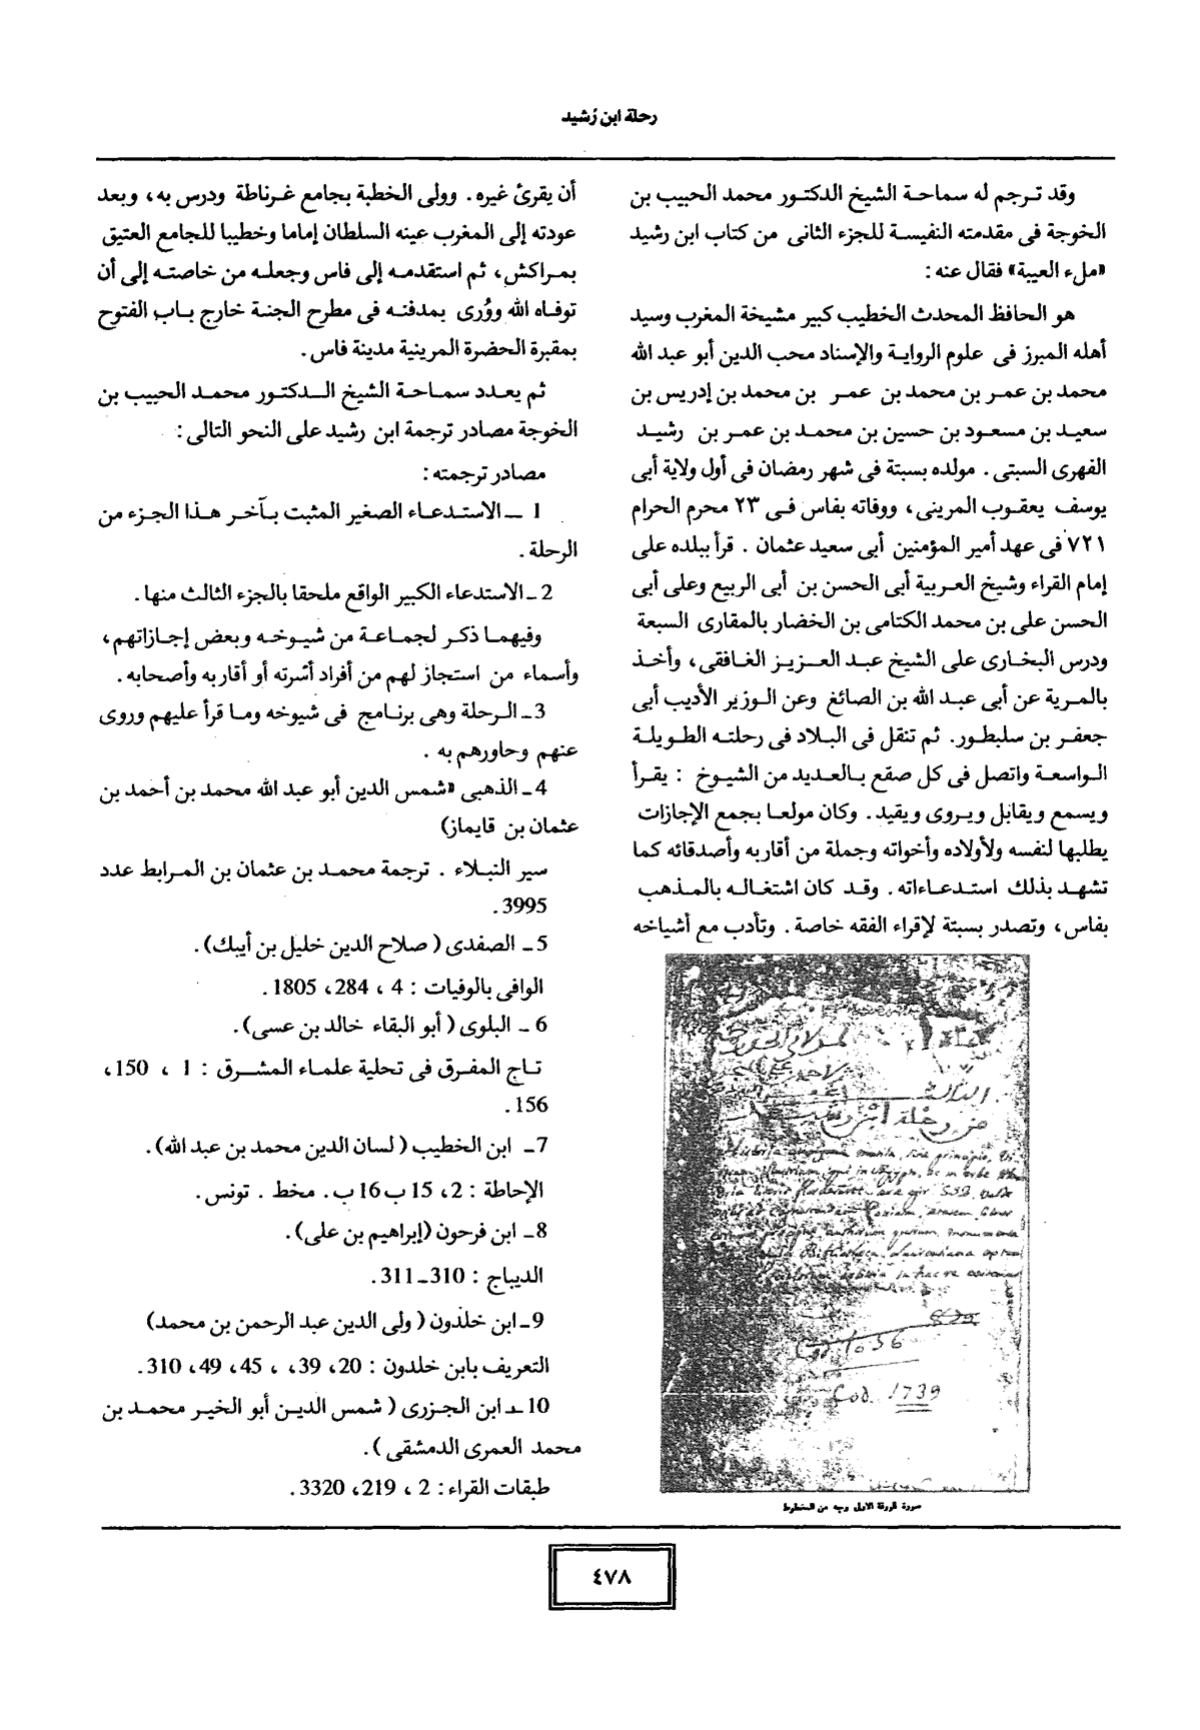 رحلة ابن رُشيد
وقد ترجم له سماحة الشيخ الدكتور محمد الحبيب بن
الخوجة فى مقدمته النفيسة للجزء الثانى من كتاب ابن رشيد
«ملء العيبة» فقال عنه :
هو الحافظ المحدث الخطيب كبير مشيخة المغرب وسيد
أهله المبرز فى علوم الرواية والإسناد محب الدين أبو عبد الله
محمد بن عمر بن محمد بن عمر بن محمد بن إدريس بن
سعيد بن مسعود بن حسين بن محمد بن عمر بن رشيد
الفهرى السبتى . مولده بسبتة فى شهر رمضان فى أول ولاية أبى
يوسف يعقوب المرينى ، ووفاته بفاس فى ٢٣ محرم الحرام
٧٢١ فى عهد أمير المؤمنين أبى سعيد عثمان . قرأ ببلده على
إمام القراء وشيخ العربية أبى الحسن بن أبى الربيع وعلى أبى
الحسن على بن محمد الكتامى بن الخضار بالمقارى السبعة
ودرس البخارى على الشيخ عبد العزيز الغافقى ، وأخذ
بالمرية عن أبى عبد الله بن الصائغ وعن الوزير الأديب أبى
جعفر بن سلبطور. ثم تنقل فى البلاد فى رحلته الطويلة
الواسعة واتصل فى كل صقع بالعديد من الشيوخ : يقرأ
ويسمع ويقابل ويروى ويقيد . وكان مولعا بجمع الإجازات
يطلبها لنفسه ولأولاده وأخواته وجملة من أقاربه وأصدقائه كما
تشهد بذلك استدعاءاته . وقد كان اشتغاله بالمذهب
بفاس ، وتصدر بسبتة لإقراء الفقه خاصة . وتأدب مع أشياخه
الثالث
من رحلة ابن رشيد
Cod. 1056
Cod. 1739
صورة الورقة الاولى وجه من المخطوط
أن يقرئ غيره . وولى الخطبة بجامع غرناطة ودرس به ، وبعد
عودته إلى المغرب عينه السلطان إماما وخطيبا للجامع العتيق
بمراكش ، ثم استقدمه إلى فاس وجعله من خاصته إلى أن
توفاه الله ووُرى بمدفنه فى مطرح الجنة خارج باب الفتوح
بمقبرة الحضرة المرينية مدينة فاس .
ثم يعدد سماحة الشيخ الدكتور محمد الحبيب بن
الخوجة مصادر ترجمة ابن رشيد على النحو التالى :
مصادر ترجمته :
1 ــ الاستدعاء الصغير المثبت بآخر هذا الجزء من
الرحلة .
2 ـ الاستدعاء الكبير الواقع ملحقا بالجزء الثالث منها .
وفيهما ذكر لجماعة من شيوخه وبعض إجازاتهم ،
وأسماء من استجاز لهم من أفراد أُسرته أو أقاربه وأصحابه .
3 ـ الرحلة وهى برنامج فى شيوخه وما قرأ عليهم وروى
عنهم وحاورهم به .
4 ـ الذهبى «شمس الدين أبو عبد الله محمد بن أحمد بن
عثمان بن قايماز)
سير النبلاء . ترجمة محمد بن عثمان بن المرابط عدد
3995 .
5 ـ الصفدى ( صلاح الدين خليل بن أيبك ) .
الوافى بالوفيات : 4 ، 284 ، 1805 .
6 ـ البلوى ( أبو البقاء خالد بن عسى ) .
تاج المفرق فى تحلية علماء المشرق : 1 ، 150 ،
156 .
7 ـ ابن الخطيب ( لسان الدين محمد بن عبد الله ) .
الإحاطة : 2 ، 15 ب 16 ب . مخط . تونس .
8 ـ ابن فرحون (إبراهيم بن على ) .
الديباج : 310 ـ 311 .
9 ـ ابن خلدون ( ولى الدين عبد الرحمن بن محمد )
التعريف بابن خلدون : 20 ، 39 ، ، 45 ، 49 ، 310 .
10 ـ ابن الجزرى ( شمس الدين أبو الخير محمد بن
محمد العمرى الدمشقى ) .
طبقات القراء : 2 ، 219 ، 3320 .
٤٧٨